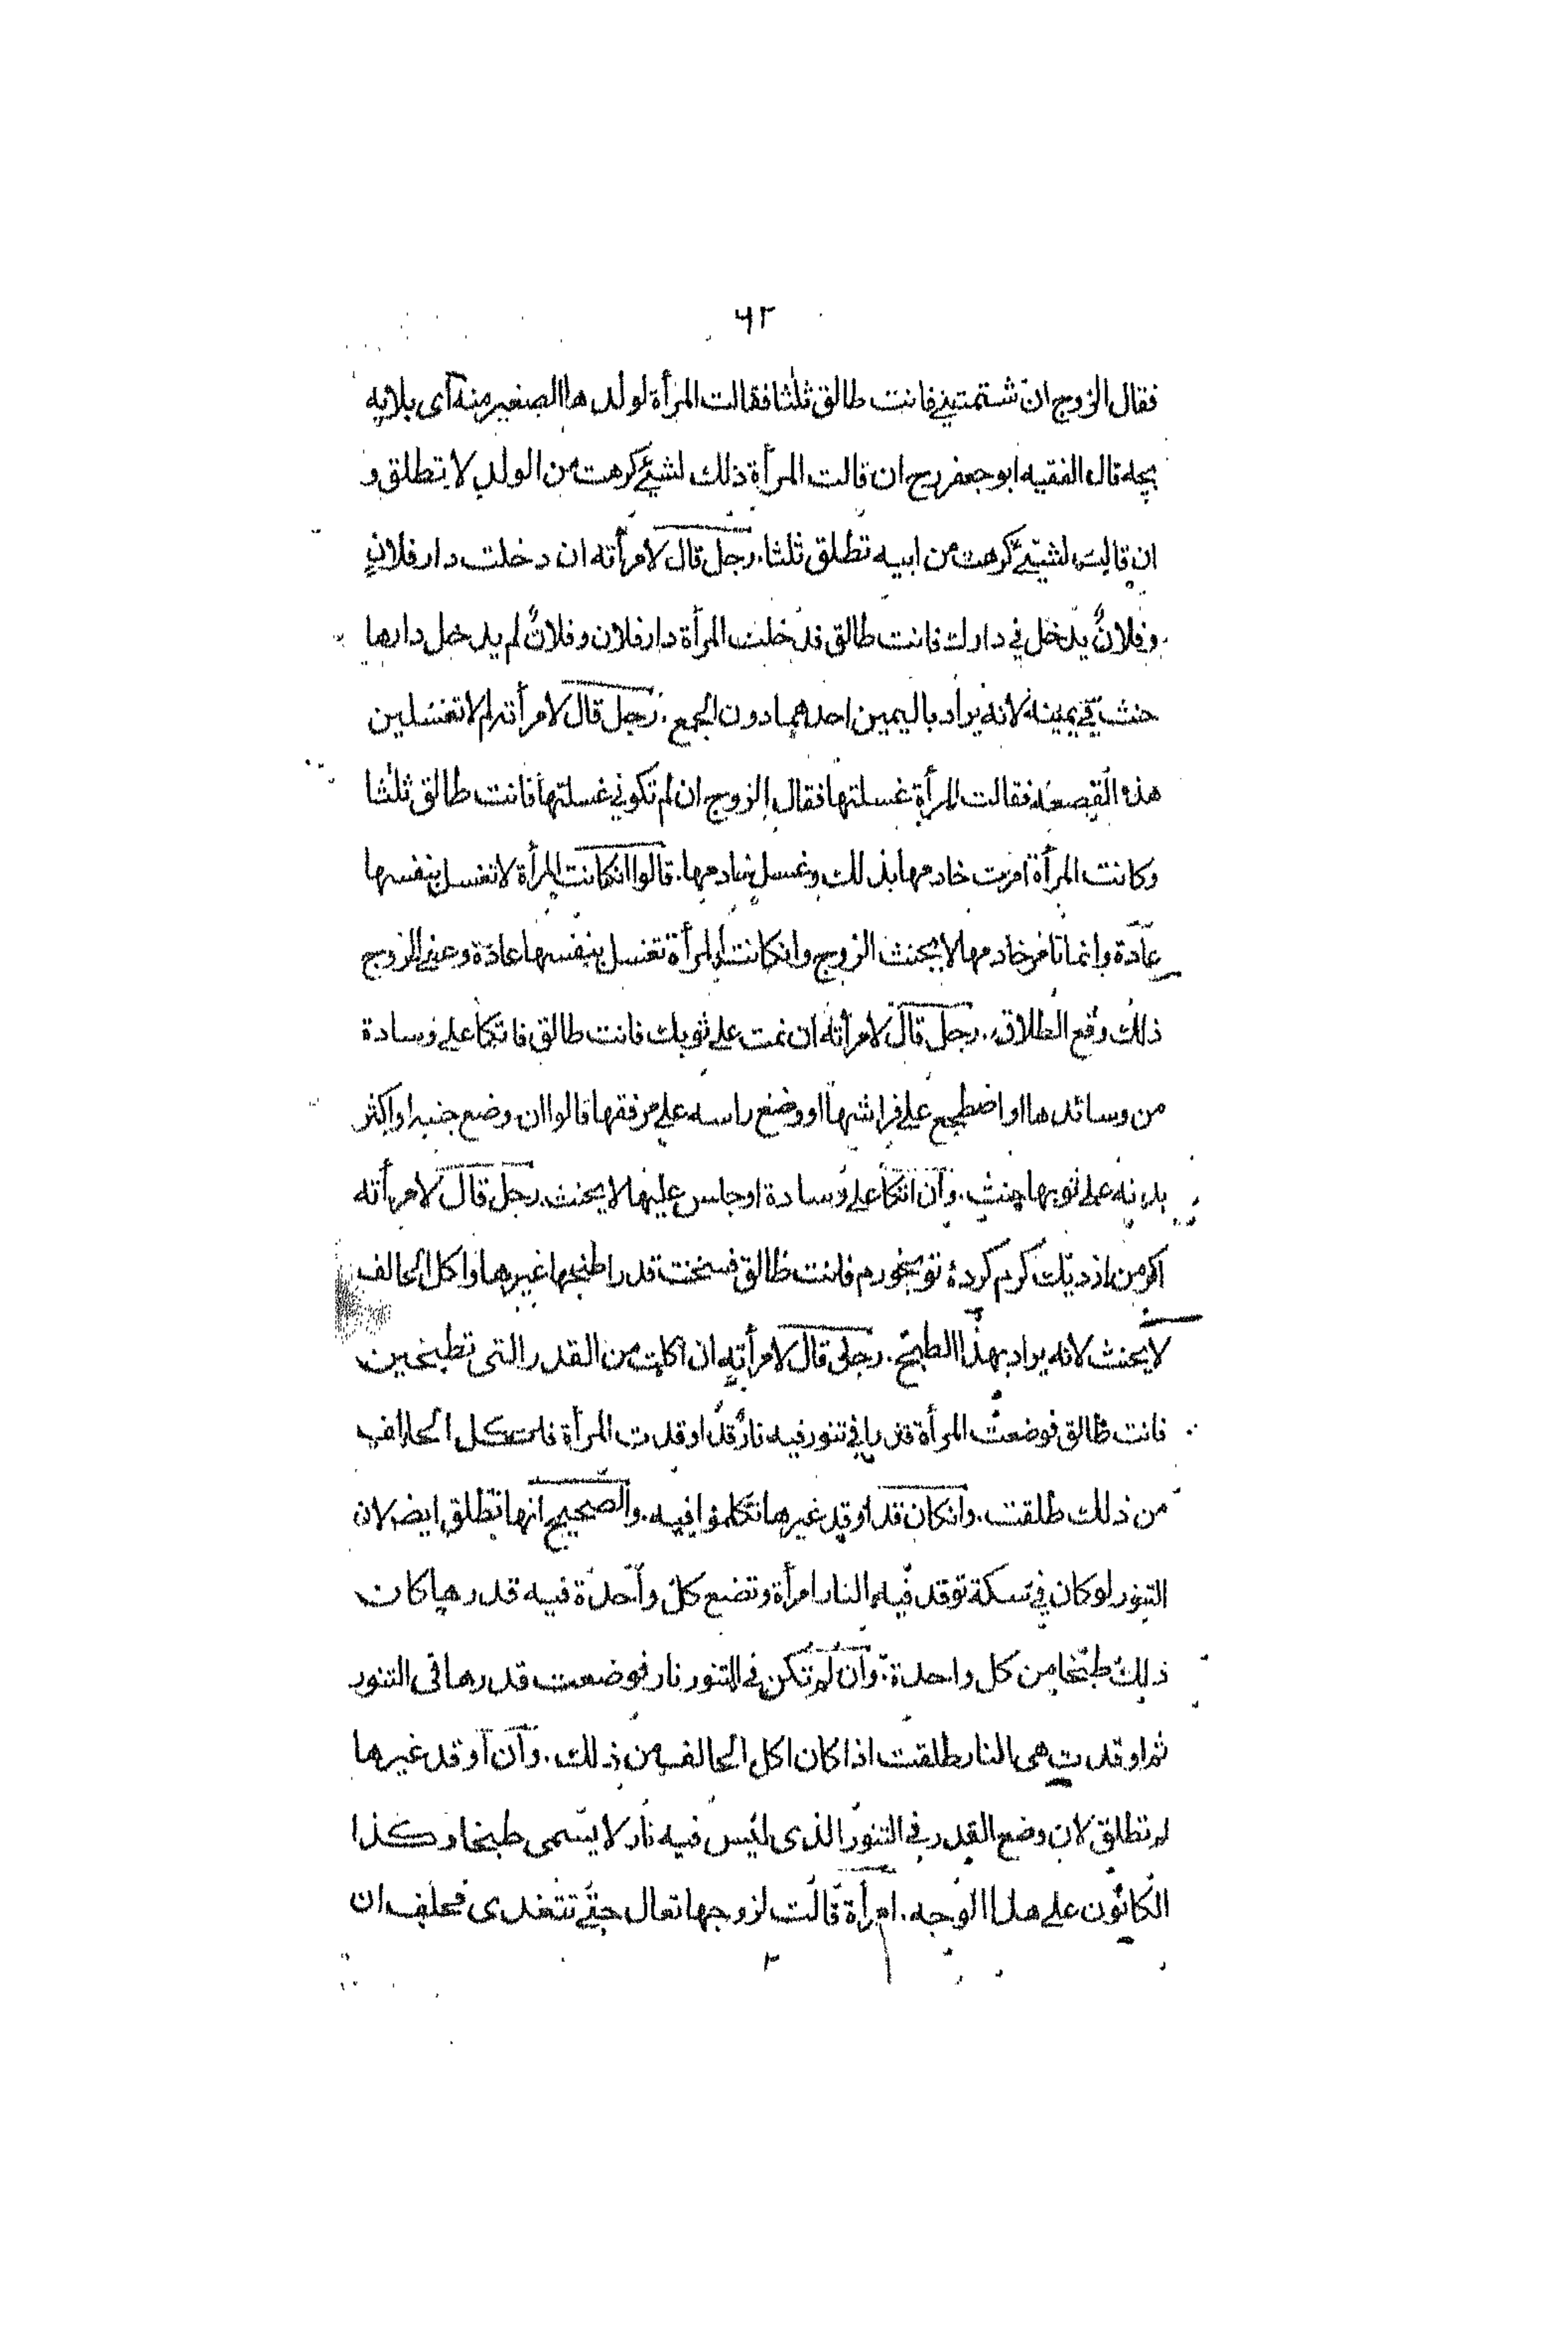 ٦٢
فقال الزوج ان شتمتينى فانت طالق ثلثا فقالت المرأة لولدها الصغير منه آى بلايه
بچه قال الفقيه ابو جعفر رح ان قالت المرأة ذلك لشيئ كرهت من الولد لا تطلق و
ان قالت لشيئ كرهت من ابيه تطلق ثلثا. رجل قال لامرأته ان دخلت دار فلان
وفلانٌ يدخل في دارك فانت طالق فدخلت المرأة دار فلان وفلانٌ لم يدخل دارها
حنث في يمينه لانه يراد باليمين احدهما دون الجمع. رجل قال لامرأته لم لا تغسلين
هذه القصعة فقالت المرأة غسلتها فقال الزوج ان لم تكوني غسلتها فانت طالق ثلثا
وكانت المرأة امرت خادمها بذلك وغسل خادمها. قالوا انكانت المرأة لا تغسل بنفسها
عادة وانما تامر خادمها لا يحنث الزوج وانكانت المرأة تغسل بنفسها عادة وعنى الزوج
ذلك وقع الطلاق. رجل قال لامرأته ان نمت على ثوبك فانت طالق فاتكأ على وسادة
من وسائدها او اضطجع على فراشها او وضع راسه على مرفقها قالوا ان وضع جنبه او اكثر
بدنه على ثوبها حنث. وان اتكأ على وسادة او جلس عليها لا يحنث. رجل قال لامرأته
اكر من از ديك كرم كردۀ تو بخورم فانت طالق فسخنت قدرا طبخها غيرها واكل الحالف
لا يحنث لانه يراد بهذا الطبخ. رجل قال لامرأته ان اكلت من القدر التى تطبخين
فانت طالق فوضعت المرأة قدرا في تنور فيه نارٌ قد اوقدت المرأة فاكل الحالف
من ذلك طلقت. وانكان قد اوقد غيرها تكلموا فيه. والصحيح انها تطلق ايضا لان
التنور لو كان في سكة توقد فيه النار امرأة وتضع كل واحدة فيه قدرها كان
ذلك طبخا من كل واحدة. وان لم تكن في التنور نار فوضعت قدرها فى التنور
ثم اوقدت هى النار طلقت اذا كان اكل الحالف من ذلك. وان اوقد غيرها
لم تطلق لان وضع القدر في التنور الذى ليس فيه نار لا يسمى طبخا وكذا
الكانون على هذا الوجه. امرأة قالت لزوجها تعال حتى تتغدى فحلف ان